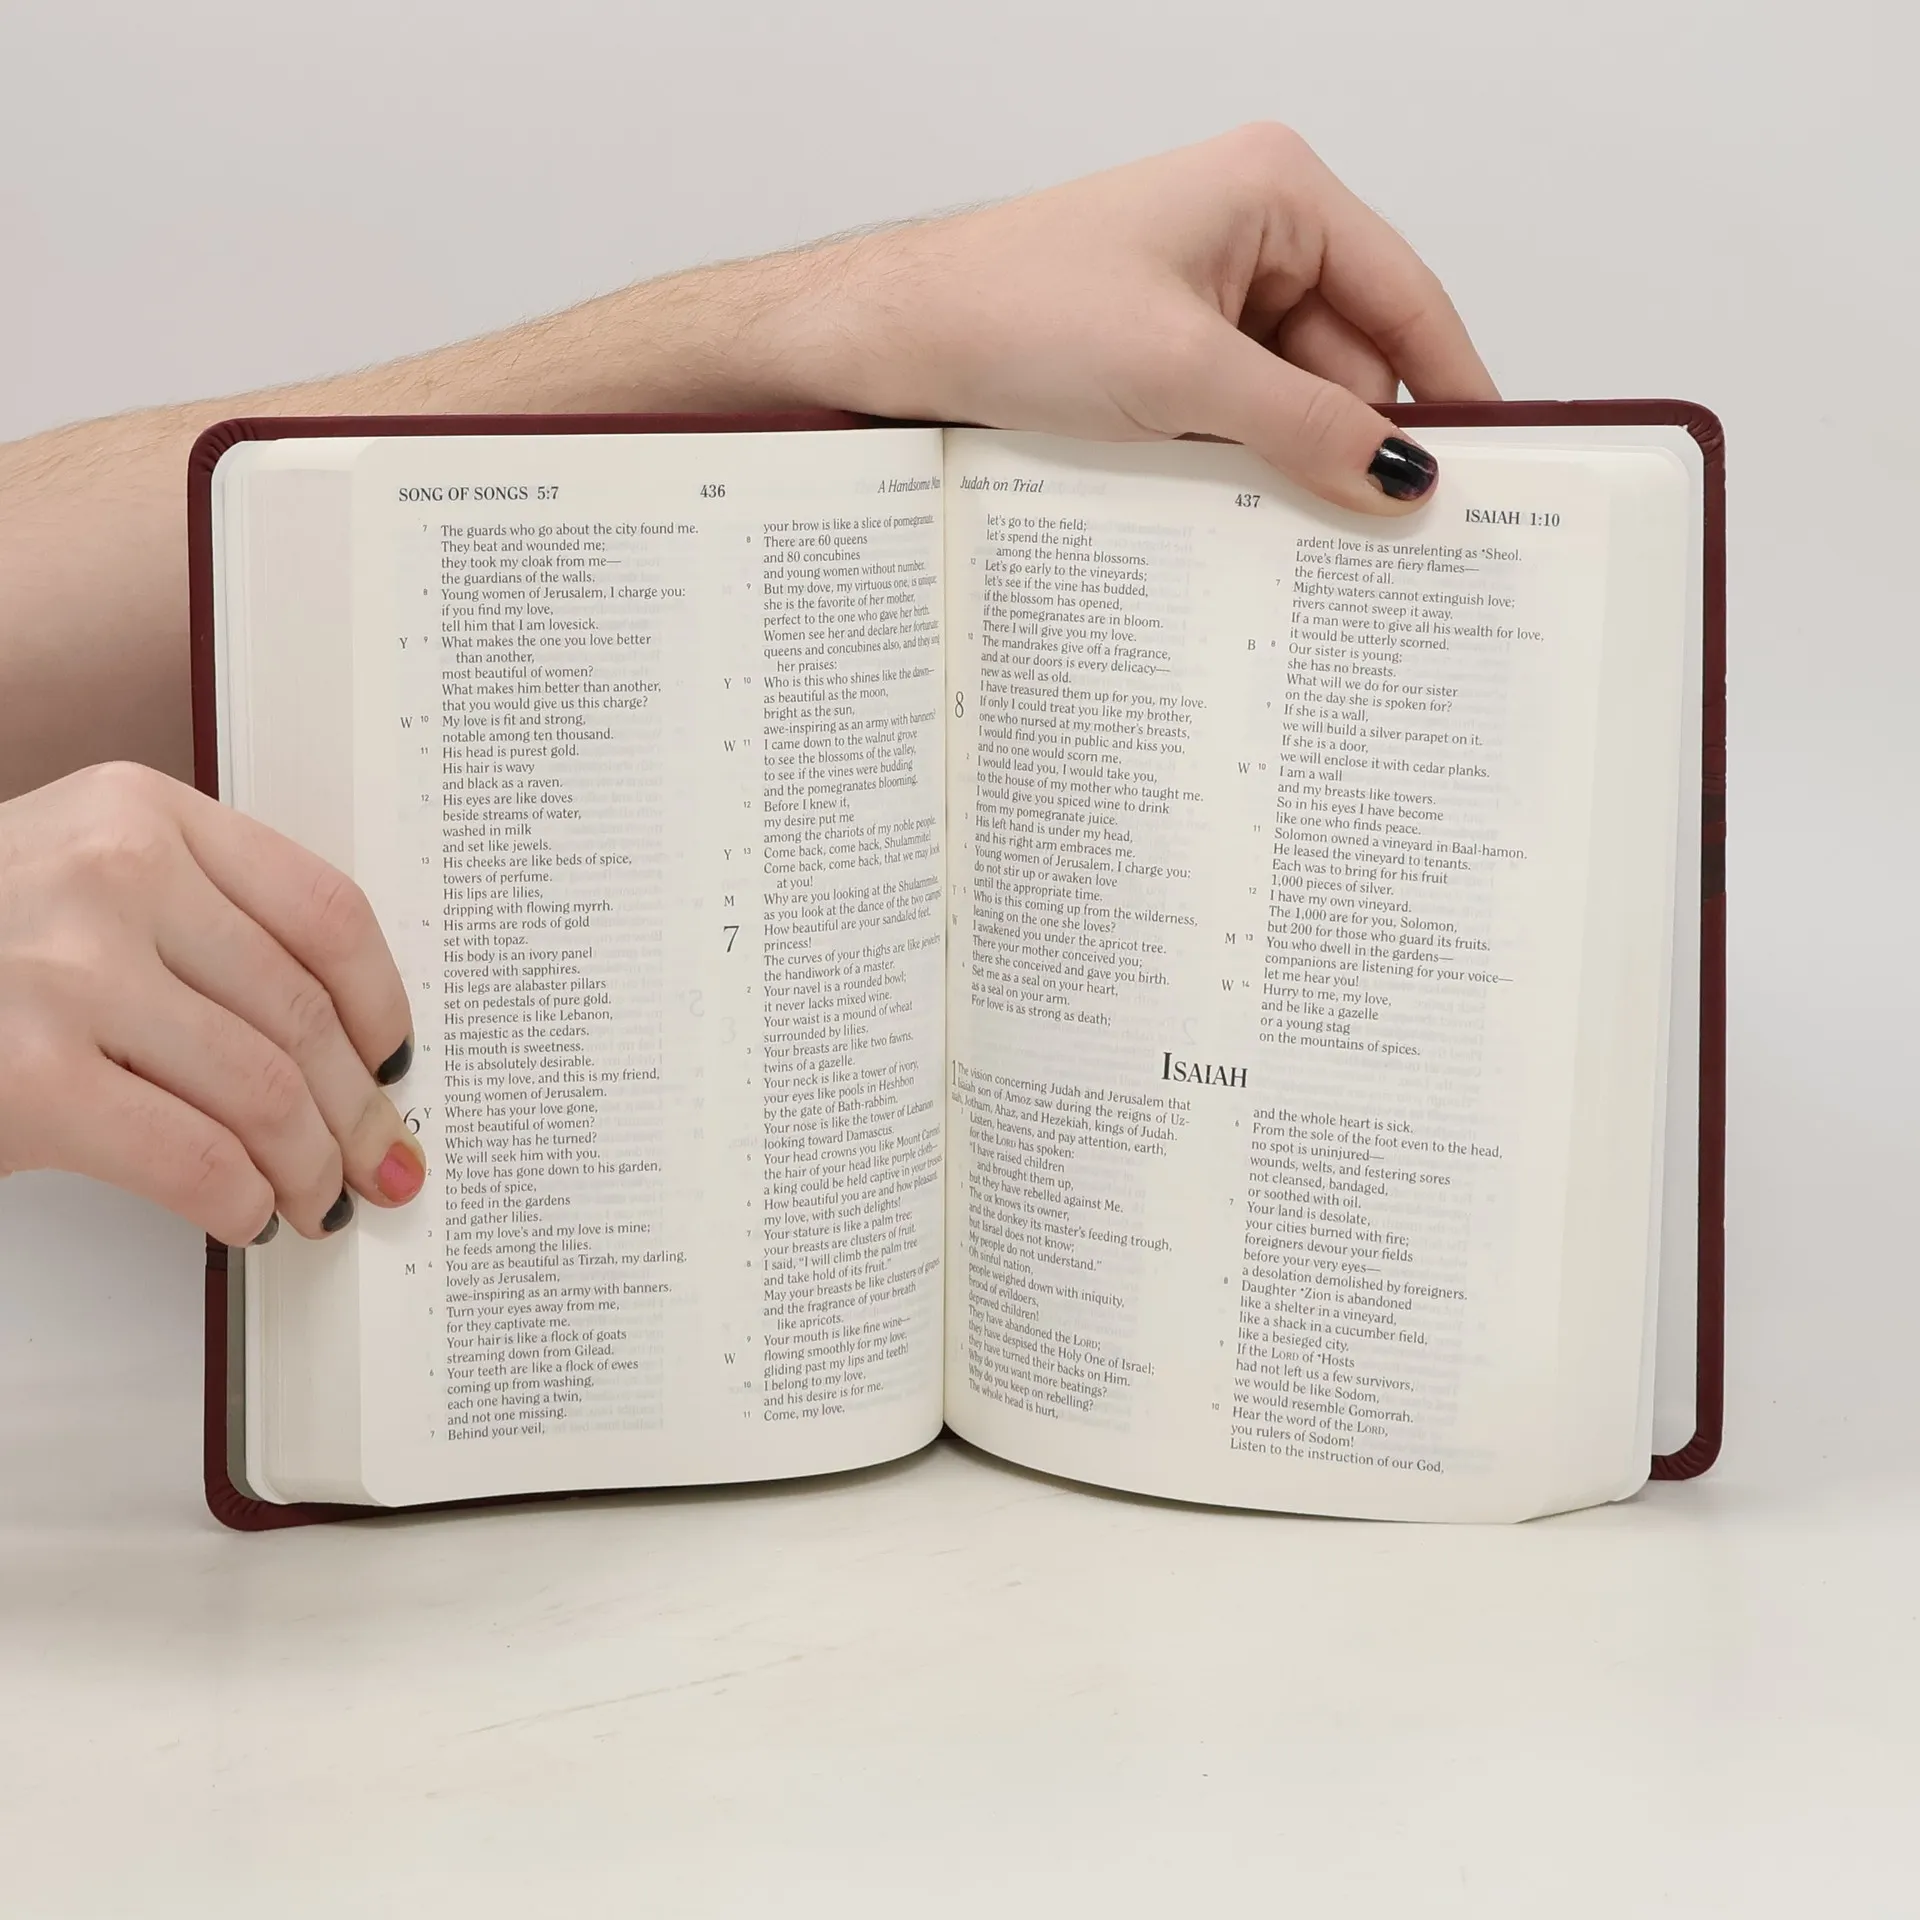 SONG OF SONGS 5:7
436
A Handsome Man
7 The guards who go about the city found me.
They beat and wounded me;
they took my cloak from me—
the guardians of the walls.
8 Young women of Jerusalem, I charge you:
if you find my love,
tell him that I am lovesick.
Y 9 What makes the one you love better
than another,
most beautiful of women?
What makes him better than another,
that you would give us this charge?
W 10 My love is fit and strong,
notable among ten thousand.
11 His head is purest gold.
His hair is wavy
and black as a raven.
12 His eyes are like doves
beside streams of water,
washed in milk
and set like jewels.
13 His cheeks are like beds of spice,
towers of perfume.
His lips are lilies,
dripping with flowing myrrh.
14 His arms are rods of gold
set with topaz.
His body is an ivory panel
covered with sapphires.
15 His legs are alabaster pillars
set on pedestals of pure gold.
His presence is like Lebanon,
as majestic as the cedars.
16 His mouth is sweetness.
He is absolutely desirable.
This is my love, and this is my friend,
young women of Jerusalem.
6 Y Where has your love gone,
most beautiful of women?
Which way has he turned?
We will seek him with you.
2 My love has gone down to his garden,
to beds of spice,
to feed in the gardens
and gather lilies.
3 I am my love's and my love is mine;
he feeds among the lilies.
M 4 You are as beautiful as Tirzah, my darling,
lovely as Jerusalem,
awe-inspiring as an army with banners.
5 Turn your eyes away from me,
for they captivate me.
Your hair is like a flock of goats
streaming down from Gilead.
6 Your teeth are like a flock of ewes
coming up from washing,
each one having a twin,
and not one missing.
7 Behind your veil,
your brow is like a slice of pomegranate.
8 There are 60 queens
and 80 concubines
and young women without number.
9 But my dove, my virtuous one, is unique;
she is the favorite of her mother,
perfect to the one who gave her birth.
Women see her and declare her fortunate;
queens and concubines also, and they sing
her praises:
Y 10 Who is this who shines like the dawn—
as beautiful as the moon,
bright as the sun,
awe-inspiring as an army with banners?
W 11 I came down to the walnut grove
to see the blossoms of the valley,
to see if the vines were budding
and the pomegranates blooming.
12 Before I knew it,
my desire put me
among the chariots of my noble people.
Y 13 Come back, come back, Shulammite!
Come back, come back, that we may look
at you!
M Why are you looking at the Shulammite,
as you look at the dance of the two camps?
7 How beautiful are your sandaled feet,
princess!
The curves of your thighs are like jewelry,
the handiwork of a master.
2 Your navel is a rounded bowl;
it never lacks mixed wine.
Your waist is a mound of wheat
surrounded by lilies.
3 Your breasts are like two fawns,
twins of a gazelle.
4 Your neck is like a tower of ivory,
your eyes like pools in Heshbon
by the gate of Bath-rabbim.
Your nose is like the tower of Lebanon
looking toward Damascus.
5 Your head crowns you like Mount Carmel,
the hair of your head like purple cloth—
a king could be held captive in your tresses.
6 How beautiful you are and how pleasant,
my love, with such delights!
7 Your stature is like a palm tree;
your breasts are clusters of fruit.
8 I said, "I will climb the palm tree
and take hold of its fruit."
May your breasts be like clusters of grapes,
and the fragrance of your breath
like apricots.
9 Your mouth is like fine wine—
W flowing smoothly for my love,
gliding past my lips and teeth!
10 I belong to my love,
and his desire is for me.
11 Come, my love,
Judah on Trial
437
ISAIAH 1:10
let's go to the field;
let's spend the night
among the henna blossoms.
12 Let's go early to the vineyards;
let's see if the vine has budded,
if the blossom has opened,
if the pomegranates are in bloom.
There I will give you my love.
13 The mandrakes give off a fragrance,
and at our doors is every delicacy—
new as well as old.
I have treasured them up for you, my love.
8 If only I could treat you like my brother,
one who nursed at my mother's breasts,
I would find you in public and kiss you,
and no one would scorn me.
2 I would lead you, I would take you,
to the house of my mother who taught me.
I would give you spiced wine to drink
from my pomegranate juice.
3 His left hand is under my head,
and his right arm embraces me.
4 Young women of Jerusalem, I charge you:
do not stir up or awaken love
until the appropriate time.
Y 5 Who is this coming up from the wilderness,
leaning on the one she loves?
W I awakened you under the apricot tree.
There your mother conceived you;
there she conceived and gave you birth.
6 Set me as a seal on your heart,
as a seal on your arm.
For love is as strong as death;
ardent love is as unrelenting as *Sheol.
Love's flames are fiery flames—
the fiercest of all.
7 Mighty waters cannot extinguish love;
rivers cannot sweep it away.
If a man were to give all his wealth for love,
it would be utterly scorned.
B 8 Our sister is young;
she has no breasts.
What will we do for our sister
on the day she is spoken for?
9 If she is a wall,
we will build a silver parapet on it.
If she is a door,
we will enclose it with cedar planks.
W 10 I am a wall
and my breasts like towers.
So in his eyes I have become
like one who finds peace.
11 Solomon owned a vineyard in Baal-hamon.
He leased the vineyard to tenants.
Each was to bring for his fruit
1,000 pieces of silver.
12 I have my own vineyard.
The 1,000 are for you, Solomon,
but 200 for those who guard its fruits.
M 13 You who dwell in the gardens—
companions are listening for your voice—
let me hear you!
W 14 Hurry to me, my love,
and be like a gazelle
or a young stag
on the mountains of spices.
ISAIAH
1 The vision concerning Judah and Jerusalem that
Isaiah son of Amoz saw during the reigns of Uz-
ziah, Jotham, Ahaz, and Hezekiah, kings of Judah.
2 Listen, heavens, and pay attention, earth,
for the LORD has spoken:
"I have raised children
and brought them up,
but they have rebelled against Me.
3 The ox knows its owner,
and the donkey its master's feeding trough,
but Israel does not know;
My people do not understand."
4 Oh sinful nation,
people weighed down with iniquity,
brood of evildoers,
depraved children!
They have abandoned the LORD;
they have despised the Holy One of Israel;
they have turned their backs on Him.
5 Why do you want more beatings?
Why do you keep on rebelling?
The whole head is hurt,
and the whole heart is sick.
6 From the sole of the foot even to the head,
no spot is uninjured—
wounds, welts, and festering sores
not cleansed, bandaged,
or soothed with oil.
7 Your land is desolate,
your cities burned with fire;
foreigners devour your fields
before your very eyes—
a desolation demolished by foreigners.
8 Daughter *Zion is abandoned
like a shelter in a vineyard,
like a shack in a cucumber field,
like a besieged city.
9 If the LORD of *Hosts
had not left us a few survivors,
we would be like Sodom,
we would resemble Gomorrah.
10 Hear the word of the LORD,
you rulers of Sodom!
Listen to the instruction of our God,